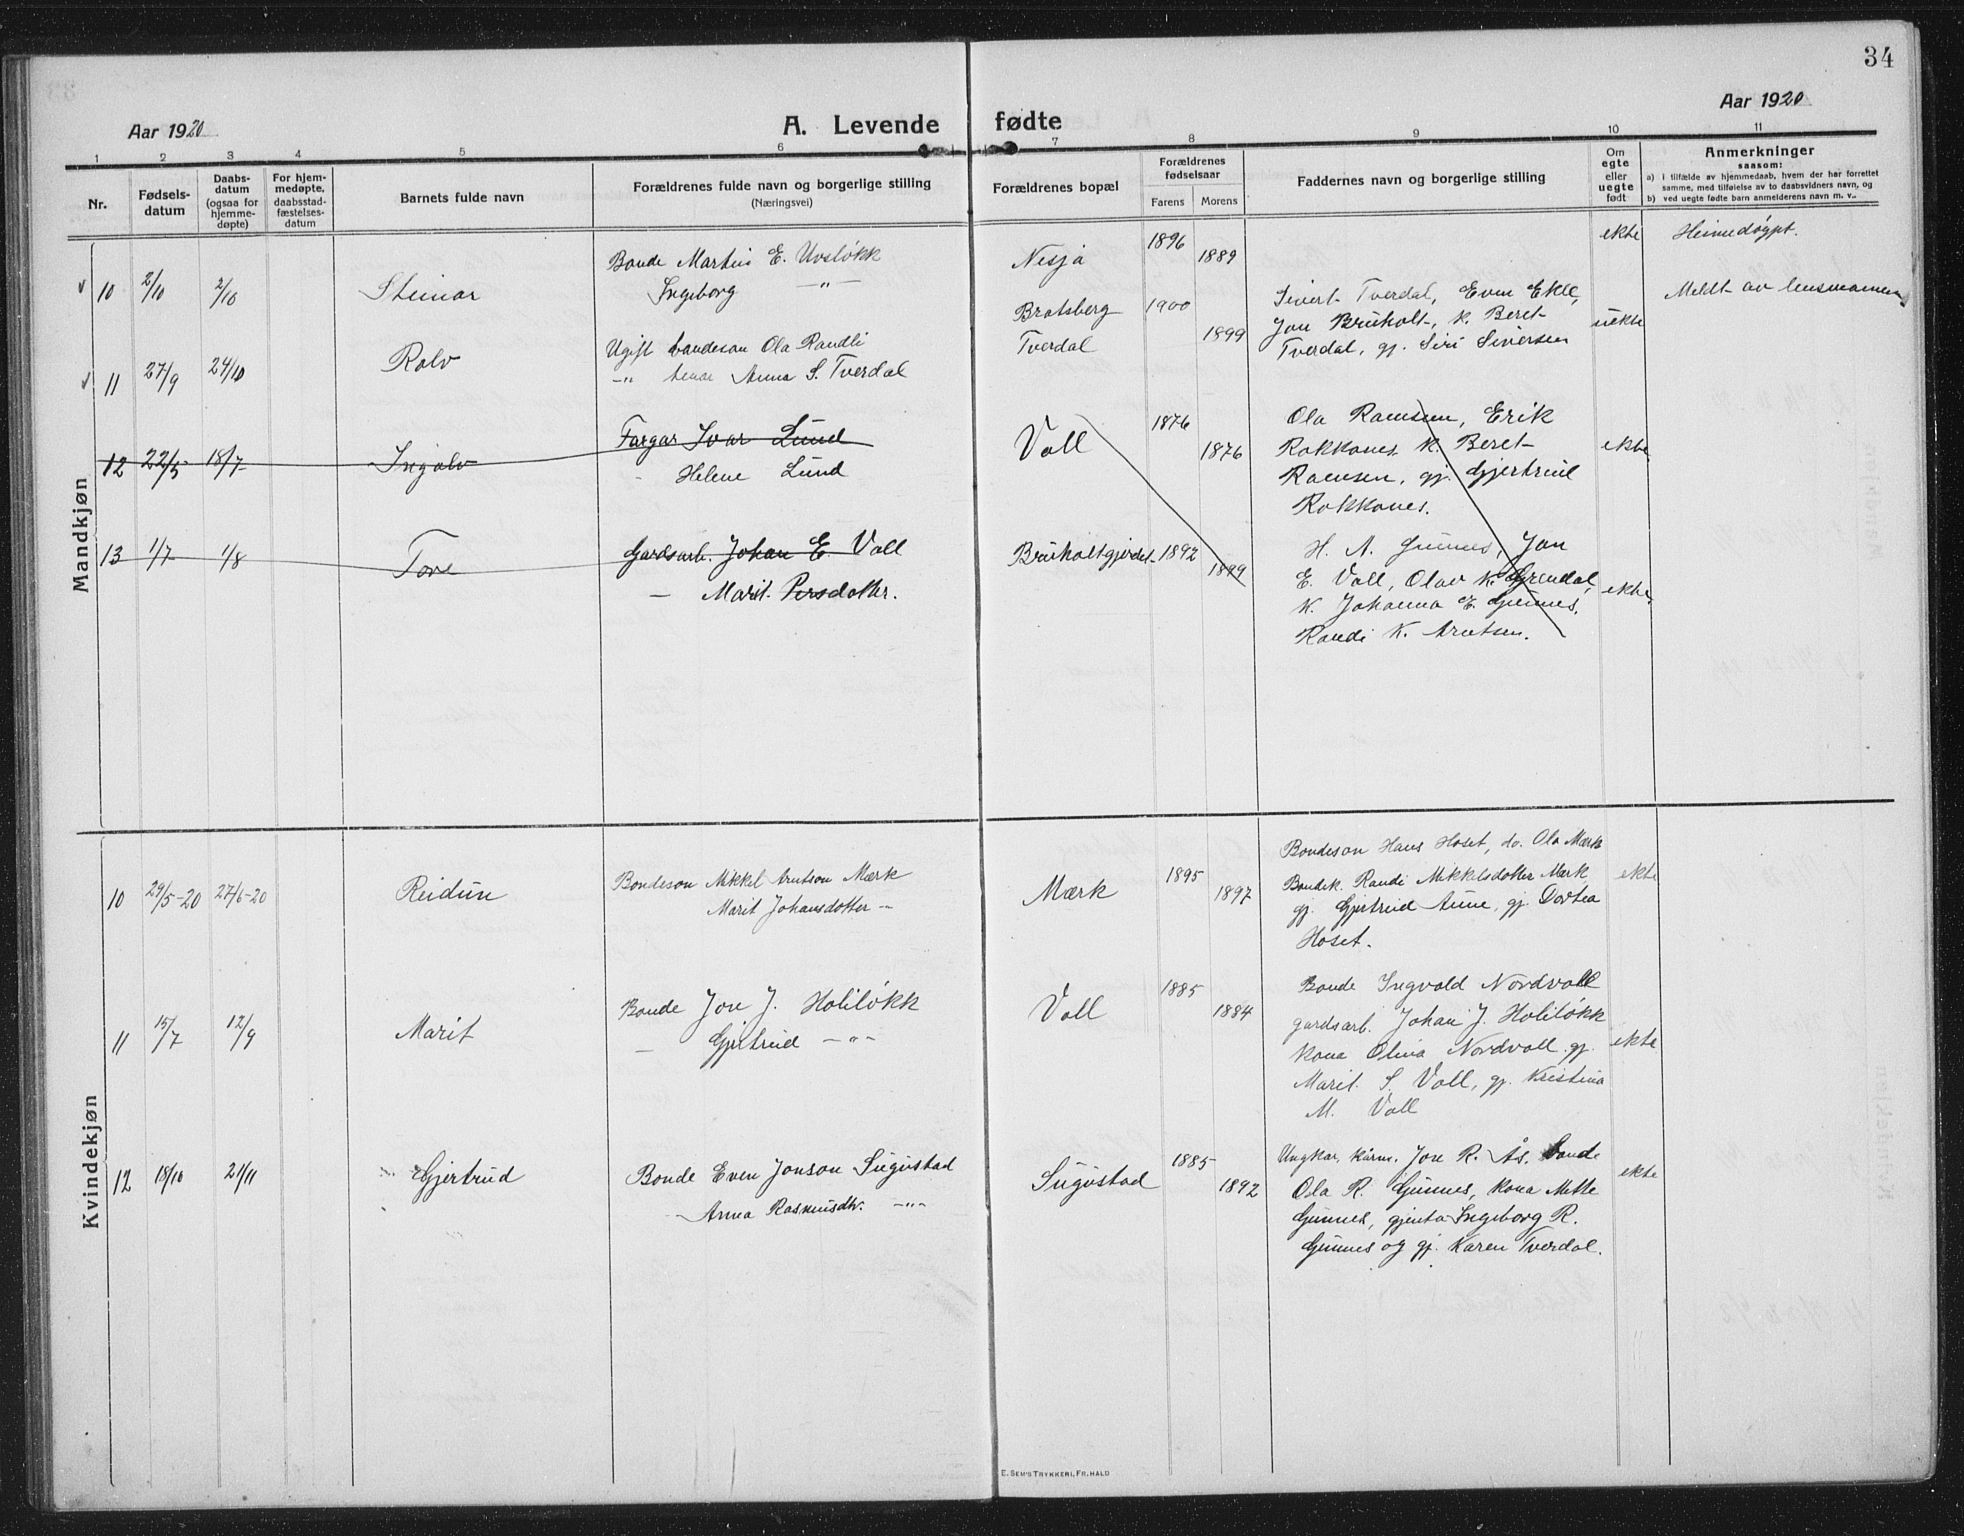 34
Aar 1920
A. Levende fødte
Aar 1920
1 2 3 4 5 6 7 8 9 10 11
Nr.
Fødsels-
datum
Daabs-
datum
(ogsaa for
hjemme-
døpte)
For hjem-
medøpte,
daabsstad-
fæstelses-
datum
Barnets fulde navn
Forældrenes fulde navn og borgerlige stilling
(Næringsvei)
Forældrenes bopæl
Forældrenes
fødselsaar
Farens Morens
Faddernes navn og borgerlige stilling
Om
egte
eller
uegte
født
Anmerkninger
saasom:
a) i tilfælde av hjemmedaab, hvem der har forrettet
samme, med tilføielse av to daabsvidners navn, og
b) ved uegte fødte barn anmelderens navn m. v..
Mandkjøn
10 2/10 2/10 Steinar
Bonde Martin E. Uvsløkk
Ingeborg -"-
Nesja 1896 1889 ekte Heimedøypt.
11 27/9 24/10 Rolv
Ugift bondeson Ola Randli
-"- Anna S. Tverdal
Bratsberg 1900
Tverdal 1899
Sivert Tverdal, Even Ekle,
Jon Bruholt, k. Beret
Tverdal, gj. Siri Siversen
uekte
Meldt av lensmannen
12 22/5 18/7 Ingolv
Fargar Ivar Lund
- Helene Lund
Voll 1876 1876
Ola Ramsen, Erik
Rokkones, k. Beret
Ramsen, gj. Gjertrud
Rokkones.
ekte.
13 1/7 1/8 Tore
Gardsarb. Johan E. Voll
- Marit Persdotter.
Bruholtgjerdet 1892 1899
H. A. Gunnes, Jon
E. Voll, Olav K. Grendal,
k. Johanna E. Gunnes,
Randi K. Arntsen.
ekte.
Kvindekjøn
10 29/5-20 27/6-20 Reidun
Bondeson Mikkel Arntson Mærk
Marit Johansdotter -"-
Mærk 1895 1897
Bondeson Hans Hoset, do. Ola Mærk
Bondek. Randi Mikkelsdotter Mærk
gj. Gjertrud Aune, gj. Dortea
Hoset.
ekte
11 15/7 12/9 Marit
Bonde Jon J. Holiløkk
- Gjertrud -"-
Voll 1885 1884
Bonde Ingvald Nordvoll
gardsarb. Johan J. Holiløkk
kona Olina Nordvoll, gj.
Marit S. Voll, gj. Kristina
M. Voll
ekte
12 18/10 21/11 Gjertrud
Bonde Even Jonson Sugustad
- Anna Rasmusdtr. -"-
Sugustad 1885 1892
Ungkar, Jon R. Ås, bonde
Ola R. Gunnes, kona Mette
Gunnes, gjenta Ingeborg R.
Gunnes og gj. Karen Tverdal.
ekte
E. SEM'S TRYKKERI, FR.HALD